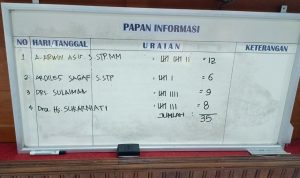 PAPAN INFORMASI
NO HARI/TANGGAL URAIAN KETERANGAN
1 A. ARWIN ASIF S. STP.MM = 12
2 ABDULES SAGAF S.STP = 6
3 DRS. SULAIMAN = 9
4 Dra. Hj. SUKARAHATI = 8
JUMLAH : 35